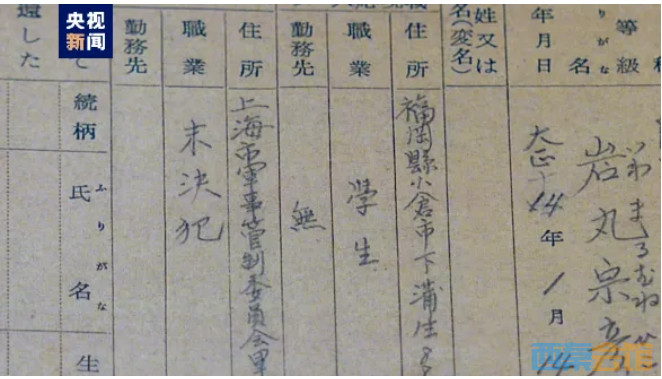 央视
新闻
等級
りがな
名
いわまる
岩丸宗
年月日
大正
14年1月14
姓又は
名(変名)
住所
福岡縣小倉市下蒲生
職業
學生
勤務先
無
住所
上海市軍事管制委員会
職業
未決犯
勤務先
て
還した
続柄
ふりがな
氏名
生